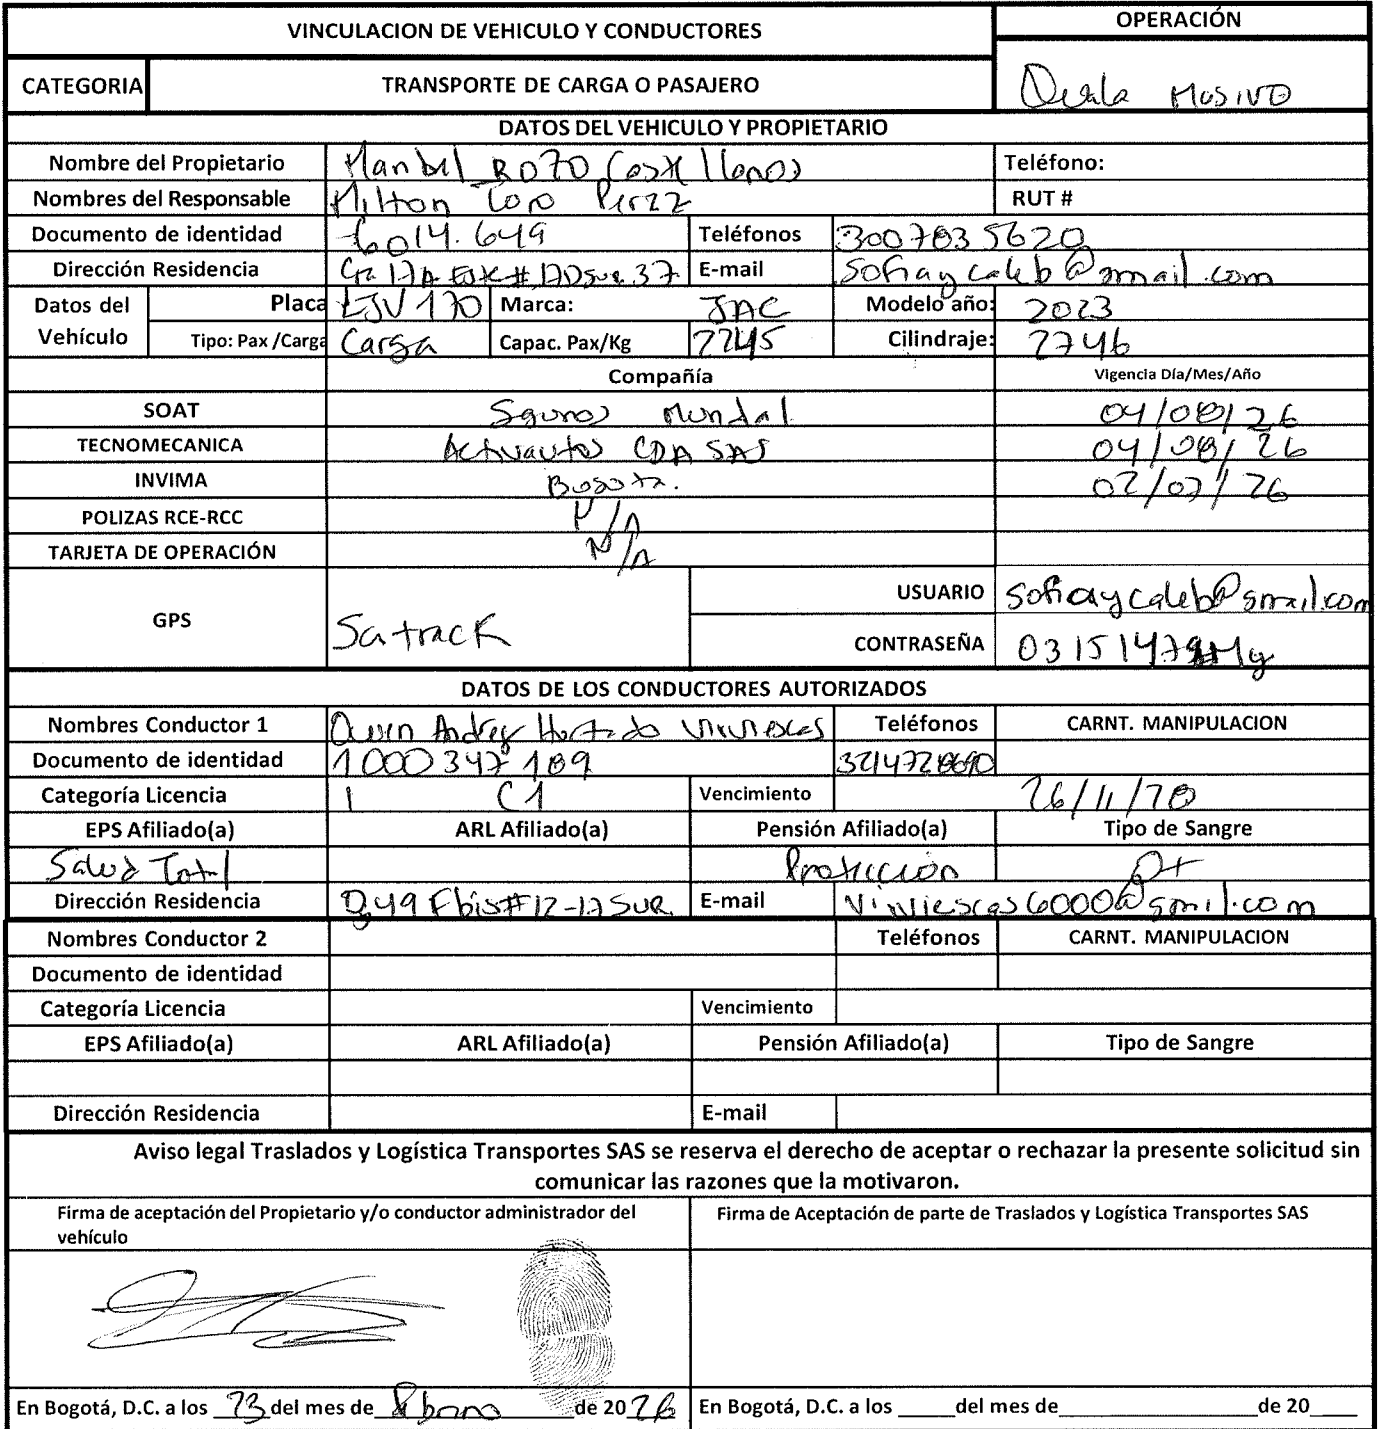 VINCULACION DE VEHICULO Y CONDUCTORES
OPERACIÓN
CATEGORIA
TRANSPORTE DE CARGA O PASAJERO
MOSIVO
DATOS DEL VEHICULO Y PROPIETARIO
Nombre del Propietario ROZO Teléfono:
Nombres del Responsable Milton Toro RUT #
Documento de identidad 6014.649 Teléfonos 3007835620
Dirección Residencia E-mail sofiaycaleb@gmail.com
Datos del Vehículo Placa LJV170 Marca: JAC Modelo año: 2023
Tipo: Pax /Carga Carga Capac. Pax/Kg 2245 Cilindraje: 2746
Compañía Vigencia Día/Mes/Año
SOAT Mundal 04/08/26
TECNOMECANICA Activautos CDA SAS 04/08/26
INVIMA Bogota. 02/07/26
POLIZAS RCE-RCC N/A
TARJETA DE OPERACIÓN N/A
GPS Satrack USUARIO sofiaycaleb@gmail.com
CONTRASEÑA
DATOS DE LOS CONDUCTORES AUTORIZADOS
Nombres Conductor 1 Hurtado Viviescas Teléfonos CARNT. MANIPULACION
Documento de identidad 1000347189
Categoría Licencia C1 Vencimiento 26/11/28
EPS Afiliado(a) ARL Afiliado(a) Pensión Afiliado(a) Tipo de Sangre
Salud Total Protección O+
Dirección Residencia E-mail Viviescas6000@gmil.com
Nombres Conductor 2 Teléfonos CARNT. MANIPULACION
Documento de identidad
Categoría Licencia Vencimiento
EPS Afiliado(a) ARL Afiliado(a) Pensión Afiliado(a) Tipo de Sangre
Dirección Residencia E-mail
Aviso legal Traslados y Logística Transportes SAS se reserva el derecho de aceptar o rechazar la presente solicitud sin
comunicar las razones que la motivaron.
Firma de aceptación del Propietario y/o conductor administrador del
vehículo
Firma de Aceptación de parte de Traslados y Logística Transportes SAS
En Bogotá, D.C. a los 23 del mes de de 20 26
En Bogotá, D.C. a los _____ del mes de _____ de 20____